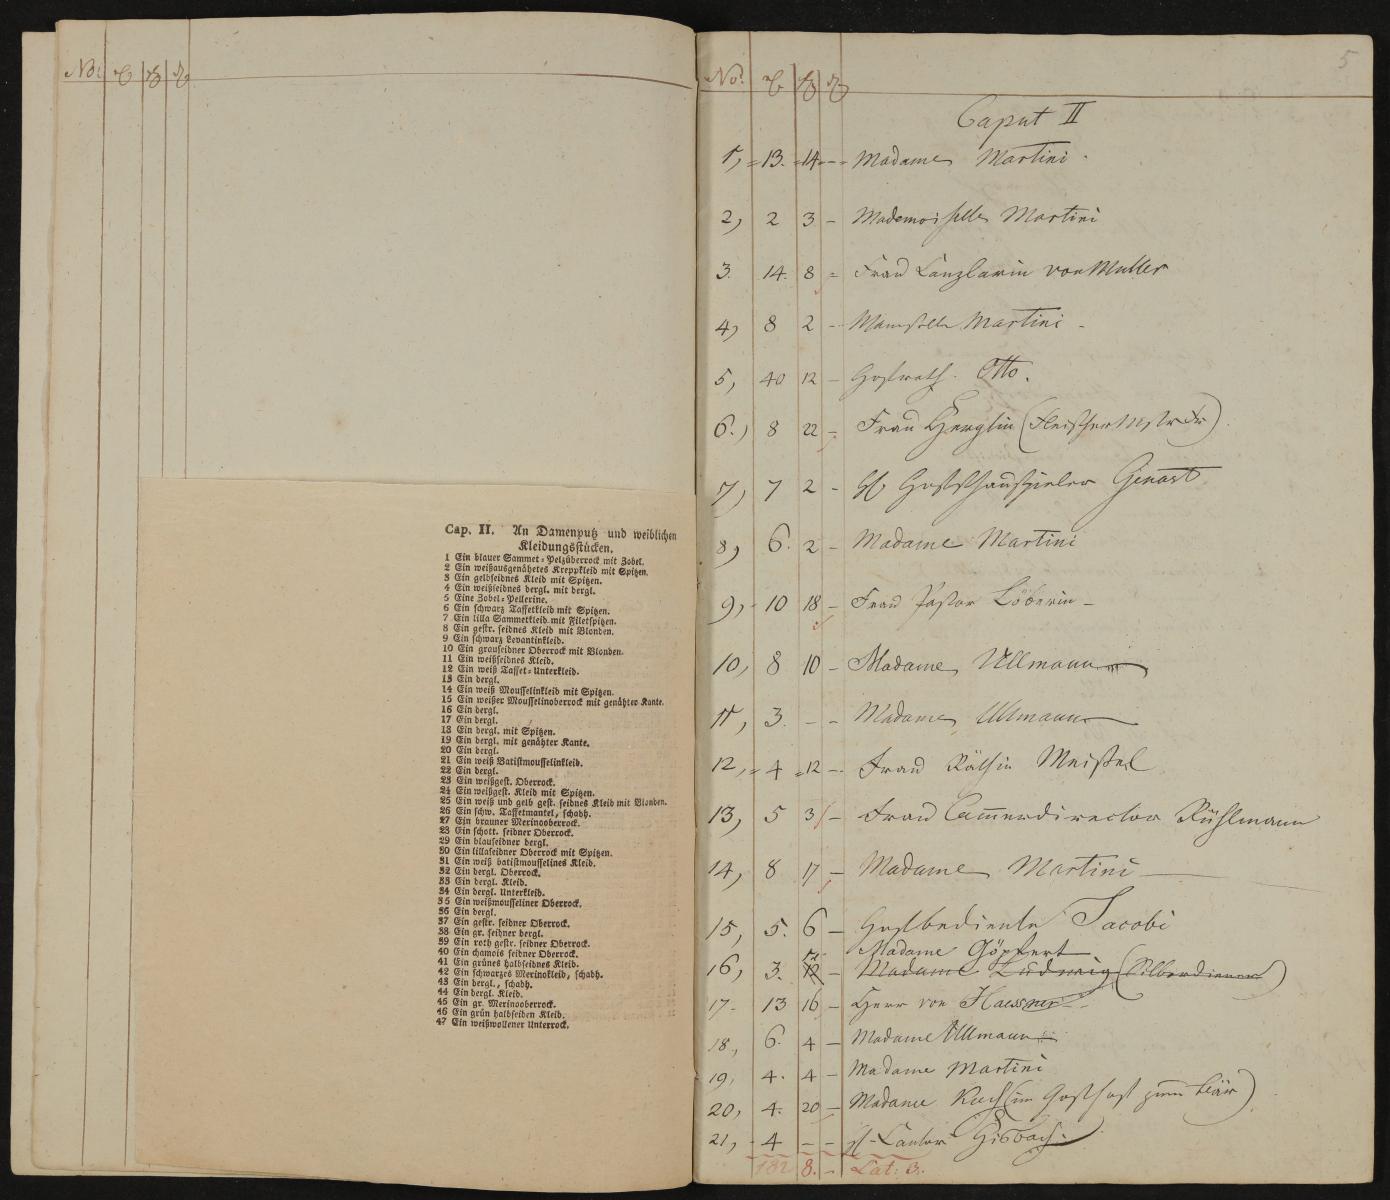 No.
Cap. II. An Damenputz und weiblichen
Kleidungsstücken.
1 Ein blauer Sammet-Pelzüberrock mit Zobel.
2 Ein weißausgenähetes Kreppkleid mit Spitzen.
3 Ein gelbseidnes Kleid mit Spitzen.
4 Ein weißseidnes dergl. mit dergl.
5 Eine Zobel-Pellerine.
6 Ein schwarz Taffetkleid mit Spitzen.
7 Ein lilla Sammetkleid mit Filetspitzen.
8 Ein gestr. seidnes Kleid mit Blonden.
9 Ein schwarz Levantinkleid.
10 Ein grauseidner Oberrock mit Blonden.
11 Ein weißseidnes Kleid.
12 Ein weiß Taffet-Unterkleid.
13 Ein dergl.
14 Ein weiß Mousselinkleid mit Spitzen.
15 Ein weißer Mousselinoberrock mit genähter Kante.
16 Ein dergl.
17 Ein dergl.
18 Ein dergl. mit Spitzen.
19 Ein dergl. mit genähter Kante.
20 Ein dergl.
21 Ein weiß Batistmousselinkleid.
22 Ein dergl.
23 Ein weißgest. Oberrock.
24 Ein weißgest. Kleid mit Spitzen.
25 Ein weiß und gelb gest. seidnes Kleid mit Blonden.
26 Ein schw. Taffetmantel, schadh.
27 Ein brauner Merinooberrock.
28 Ein schott. seidner Oberrock.
29 Ein blauseidner dergl.
30 Ein lillaseidner Oberrock mit Spitzen.
31 Ein weiß batistmousselines Kleid.
32 Ein dergl. Oberrock.
33 Ein dergl. Kleid.
34 Ein dergl. Unterkleid.
35 Ein weißmousseliner Oberrock.
36 Ein dergl.
37 Ein gestr. seidner Oberrock.
38 Ein gr. seidner dergl.
39 Ein roth gestr. seidner Oberrock.
40 Ein chamois seidner Oberrock.
41 Ein grünes halbseidnes Kleid.
42 Ein schwarzes Merinokleid, schadh.
43 Ein dergl., schadh.
44 Ein dergl. Kleid.
45 Ein gr. Merinooberrock.
46 Ein grün halbseiden Kleid.
47 Ein weißwollener Unterrock.
5
No.
Caput II
1, 13. 14 - Madame Martini
2, 2 3 - Mademoiselle Martini
3. 14. 8 - Frau Canzlarin von Muller
4, 8 2 - Mamsell Martini
5, 40 12 - Hofrath Otto.
6.) 8 22 - Frau
7, 7 2 - Hofschauspieler Genast
8, 6. 2 - Madame Martini
9, 10 18 - Frau Pastor Löberin
10, 8 10 - Madame Ullmann
11, 3. - - Madame Ullmann
12, 4 12 - Frau Räthin Meißel
13, 5 3 - Frau Cammerdirector Rühlmann
14, 8 17 - Madame Martini
15, 5. 6 - Hofbediente Jacobi
Madame Göpfert
16, 3. 12 - Madame Ludwig (Silberdiener)
17. 13 16 Herr von Haessner
18, 6. 4 - Madame Ullmann
19, 4. 4 - Madame Martini
20, 4. 20 - Madame Koch (im Gasthof zum Bär)
21, 4 - - Cantor Gisbach
182 8. - Lat: 3.